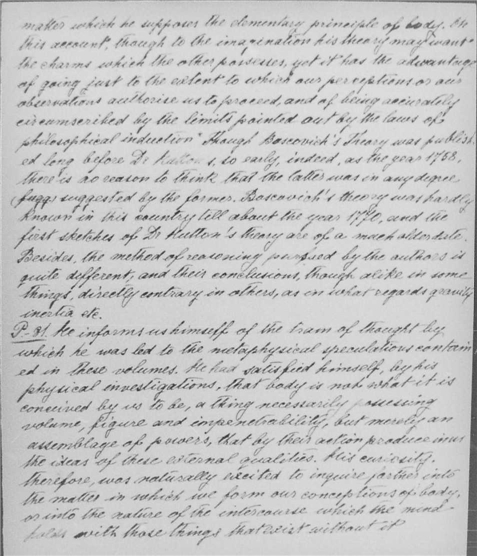 matter which he supposes the elementary principle of body. On
this account, though to the imagination his theory may want
the charms which the other possesses, yet it has the advantage
of going just to the extent to which our perceptions or our
observations authorise us to proceed, and of being accurately
circumscribed by the limits pointed out by the laws of
philosophical induction" Though Boscovich's Theory was publish
ed long before Dr Hutton's, so early, indeed, as the year 1758,
there is no reason to think that the latter was in any degree
suggested by the former. Boscovich's theory was hardly
known in this country till about the year 1770, and the
first sketches of Dr Hutton's theory are of a much older date.
Besides, the method of reasoning pursued by the authors is
quite different, and their conclusions, though alike in some
things, directly contrary in others, as in what regards gravity
inertia etc.
He informs us himself of the train of thought by
which he was led to the metaphysical speculations contain
ed in these volumes. He had satisfied himself, by his
physical investigations, that body is not what it is
conceived by us to be, a thing necessarily possessing
volume, figure and impenetrability, but merely an
assemblage of powers, that by their action produce in us
the ideas of these external qualities. His curiosity,
therefore, was naturally excited to inquire farther into
the matter in which we form our conceptions of body,
or into the nature of the intercourse which the mind
holds with those things that exist without it